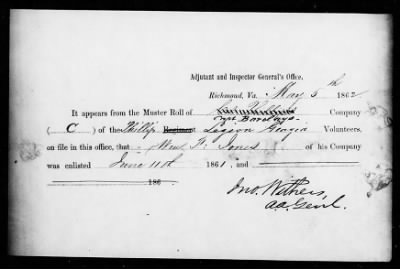 Adjutant and Inspector General's Office,
Richmond, Va. May 5th 1862
It appears from the Muster Roll of Company
Capt Barclays
( C ) of the Phillips Regiment Legion Georgia Volunteers,
on file in this office, that Wm. F. Jones of his Company
was enlisted June 11th 1861, and
186
Jno. Withers,
A.A. Genl.